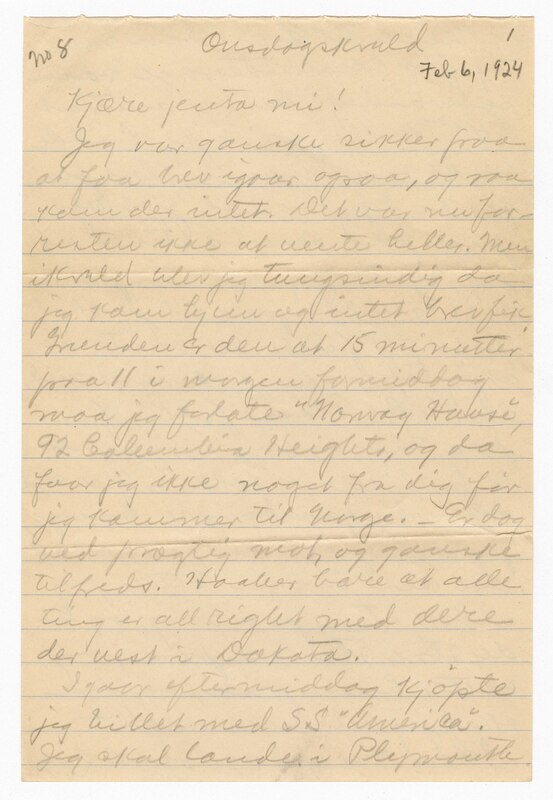 no 8
Onsdagskveld
Feb 6, 1924
Kjære jenta mi!
Jeg var ganske sikker paa
at faa brev igaar ogsaa, og saa
kom der intet. Det var nu for-
resten ikke at vente heller. Men
ikveld blev jeg tungsindig da
jeg kom hjem og intet brev fik
Grunden er den at 15 minutter
paa 11 i morgen formiddag
maa jeg forlate "Norway House",
92 Columbia Heights, og da
faar jeg ikke noget fra dig før
jeg kommer til Norge. – Er dog
ved prægtig mot, og ganske
tilfreds. Haaber bare at alle
ting er all right med dere
der vest i Dakota.
Igaar eftermiddag kjöpte
jeg billet med SS "America".
Jeg skal lande i Plymouth